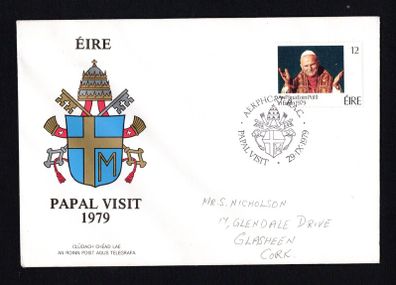 ÉIRE
M
PAPAL VISIT
1979
CLÚDACH CHÉAD LAE
AN ROINN POIST AGUS TELEGRAFA
12
1979
ÉIRE
PAPAL VISIT · 29·IX·1979
MR. S. NICHOLSON
14, GLENDALE DRIVE
GLASHEEN
CORK.